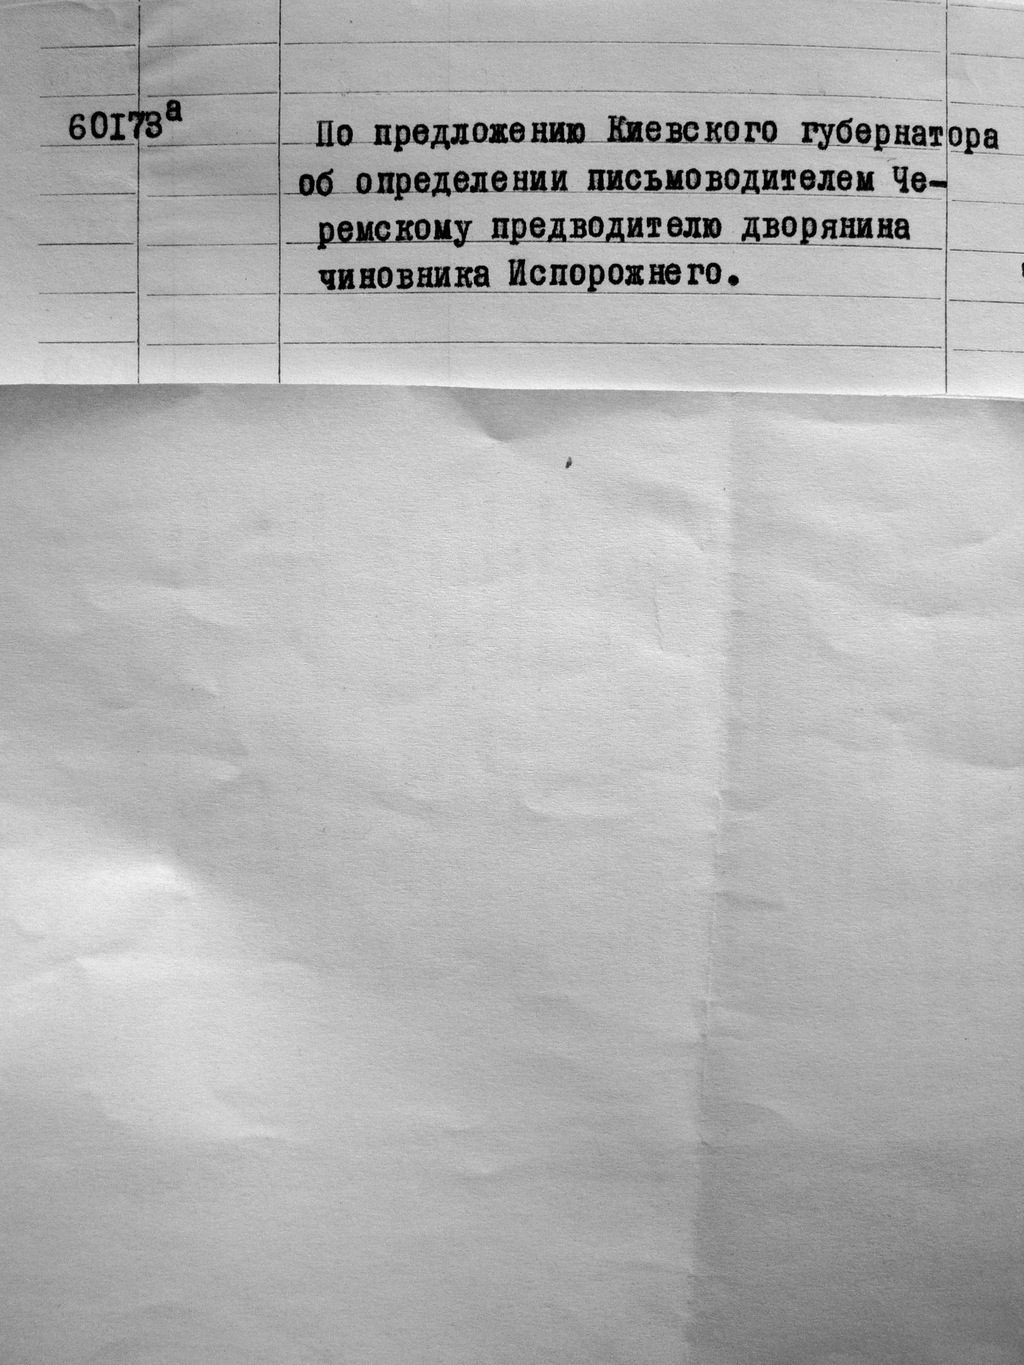 60173а По предложению Киевского губернатора
об определении письмоводителем Че-
ремскому предводителю дворянина
чиновника Испорожнего.